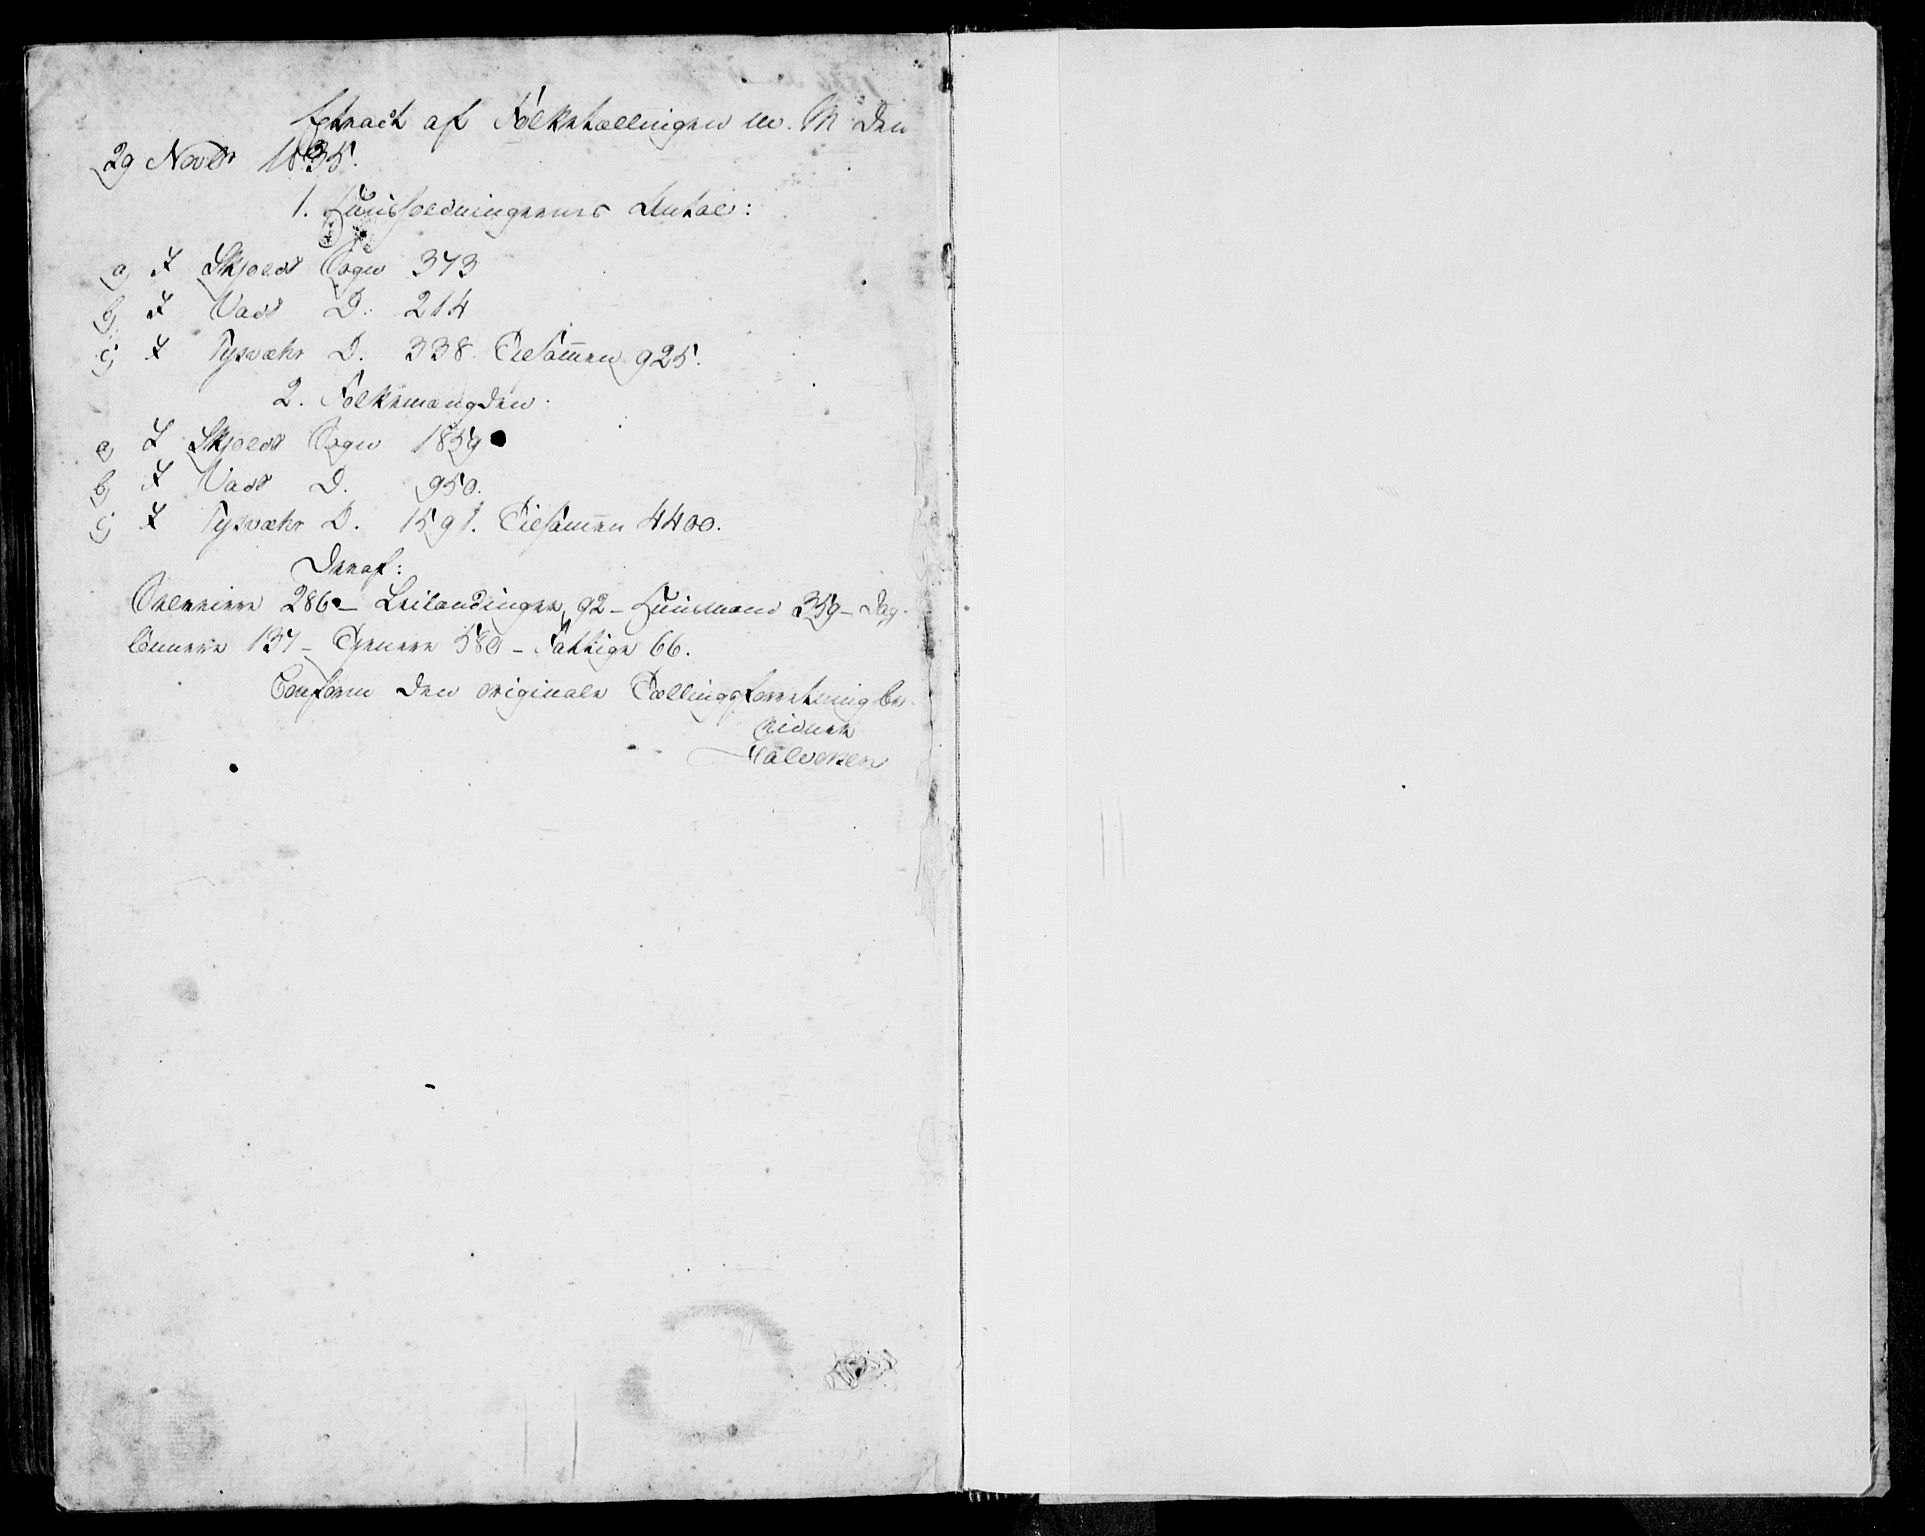 Extract af Folketællingen m. M den
29 Novbr 1835.
1. Huusholdningernes Antal:
a) I Skjold Sogn 373
b) I Vads D. 214
c) I Tysvæhr D. 338. Tilsam̅en 925.
2. Folkemængden:
a) I Skjold Sogn 1859
b) I Vads D. 950.
c) I Tysvæhr D. 1591. Tilsam̅en 4400.
Deraf:
Selveiere 286 – Leilændinger 92 – Huusmænd 359 – Dag-
lønnere 137 – Tjenere 580 – Fattige 66.
Conform den originale Tællingsforretning be-
vidner
Halvorsen